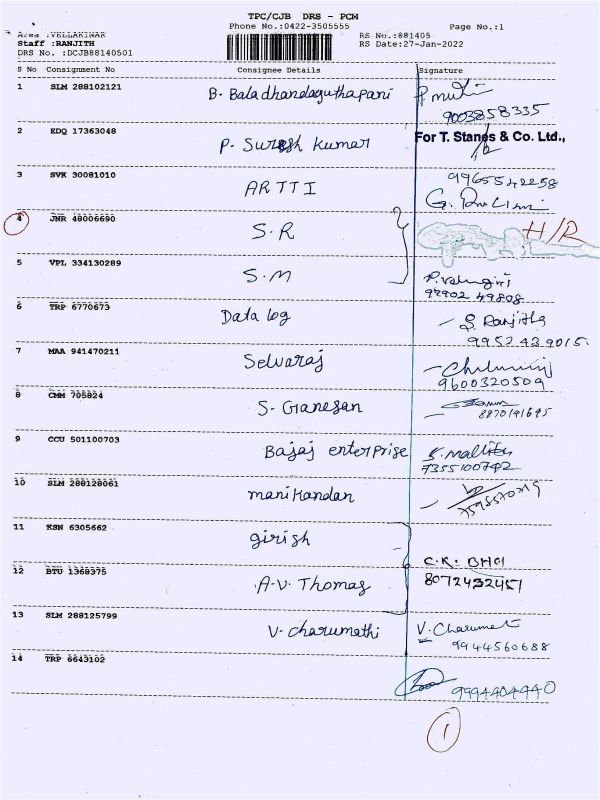 TPC/CJB DRS - PCM
Phone No.:0422-3505555 Page No.:1
Area :VELLAKINAR RS No.:881405
Staff :RANJITH RS Date:27-Jan-2022
DRS No. :DCJB88140501
S No Consignment No Consignee Details Signature
1 SLM 288102121 B. Baladhandaguthapani
9003858335
2 EDQ 17363048 P. Suresh Kumar For T. Stanes & Co. Ltd.,
3 SVK 30081010 ARTTI 9965542258
4 JNR 48006690 S.R H/R
5 VPL 334130289 S.M P.Velungiri
99902 49808
6 TRP 6770673 Data log S. Ranjitha
9952439015.
7 MAA 941470211 Selvaraj
9600320509
8 CMM 705824 S. Ganesan
8870191695
9 CCU 501100703 Bajaj enterprise S. Mallika
7355100742
10 SLM 288128061 manikandan
11 KSN 6305662 girish
C.K. BHA
12 BTU 1368375 A.V. Thomas 8072432457
13 SLM 288125799 V. Charumathi V. Charumati
9944560688
14 TRP 6643102
9994404440
1